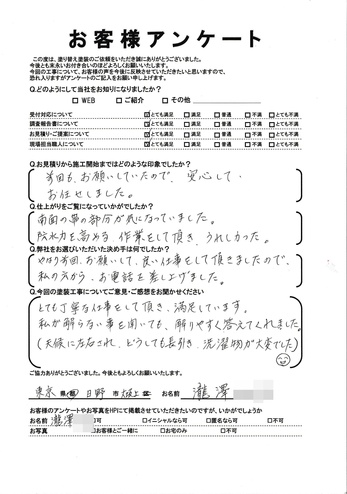 お客様アンケート
この度は、塗り替え塗装のご依頼をいただき誠にありがとうございました。
今後とも末永いお付き合いのほどよろしくお願いいたします。
今回の工事について、お客様の声を今後に反映させていただきたいと思いますので、
恐れ入りますがアンケートのご記入をお願い申し上げます。
Q.どのようにして当社をお知りになりましたか?
□ WEB □ ご紹介 □ その他
受付対応について ☑とても満足 □満足 □普通 □不満 □とても不満
調査報告書について ☑とても満足 □満足 □普通 □不満 □とても不満
お見積り・ご提案について ☑とても満足 □満足 □普通 □不満 □とても不満
現場担当職人について ☑とても満足 □満足 □普通 □不満 □とても不満
Q.お見積りから施工開始まではどのような印象でしたか?
前回も、お願いしていたので、安心して
お任せしました。
Q.仕上がりをご覧になっていかがでしたか?
南面の壁の部分が気になっていました。
防水力を高める 作業をして頂き、うれしかった。
Q.弊社をお選びいただいた決め手は何でしたか?
やはり前回、お願いして、良い仕事をして頂きましたので、
私の方から、お電話を差し上げました。
Q.今回の塗装工事についてご意見・ご感想をお聞かせください
とても丁寧な仕事をして頂き、満足しています。
私が解らない事を聞いても、解りやすく答えてくれました。
(天候に左右され、どうしても長引き、洗濯物が大変でした)
ご協力ありがとうございました。今後ともよろしくお願いいたします。
東京 県・都 日野 市 区 お名前 瀧澤
お客様のアンケートやお写真をHPに掲載させていただきたいのですが、いかがでしょうか
お名前 瀧澤 可 □イニシャルなら可 □匿名なら可 □不可
お写真 □お客様とご一緒に □お宅のみ □不可